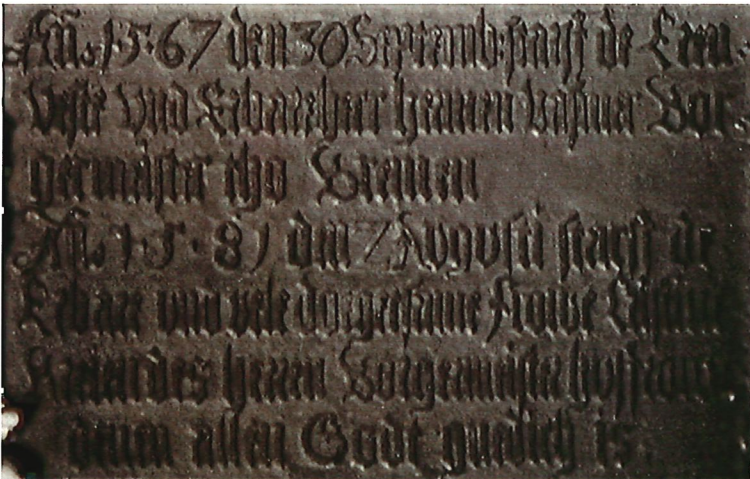 Añ. 1567 den 30 Septemb: starff de Eren
Veste vnd Erbarr herr hermen vasmer Bor
germeister tho Bremen
Añ. 1581 den 7 Avgvsti starff de
Erbare vnd vele dorgetsame frowe
des herren Borgermeister hvsfrowe
denen allen Godt gnedich is.